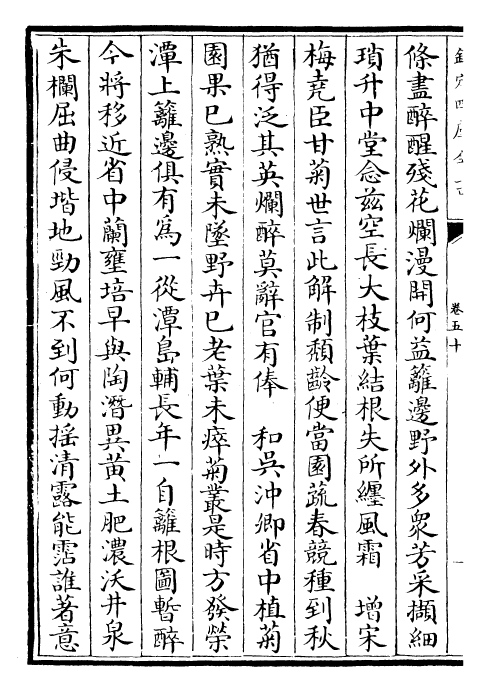 欽定四庫全書
卷五十
條盡醉醒殘花爛漫開何益籬邊野外多衆芳采擷細
瑣升中堂念兹空長大枝葉結根失所纏風霜　增宋
梅堯臣甘菊世言此解制頹齡便當園蔬春競種到秋
猶得泛其英爛醉莫辭官有俸　和吳沖卿省中植菊
園果已熟實未墜野卉已老葉未瘁菊叢是時方發榮
潭上籬邊俱有為一從潭島輔長年一自籬根圖暫醉
今將移近省中蘭壅培早與陶潛異黄土肥濃沃井泉
朱欄屈曲侵堦地勁風不到何動摇清露能霑誰著意